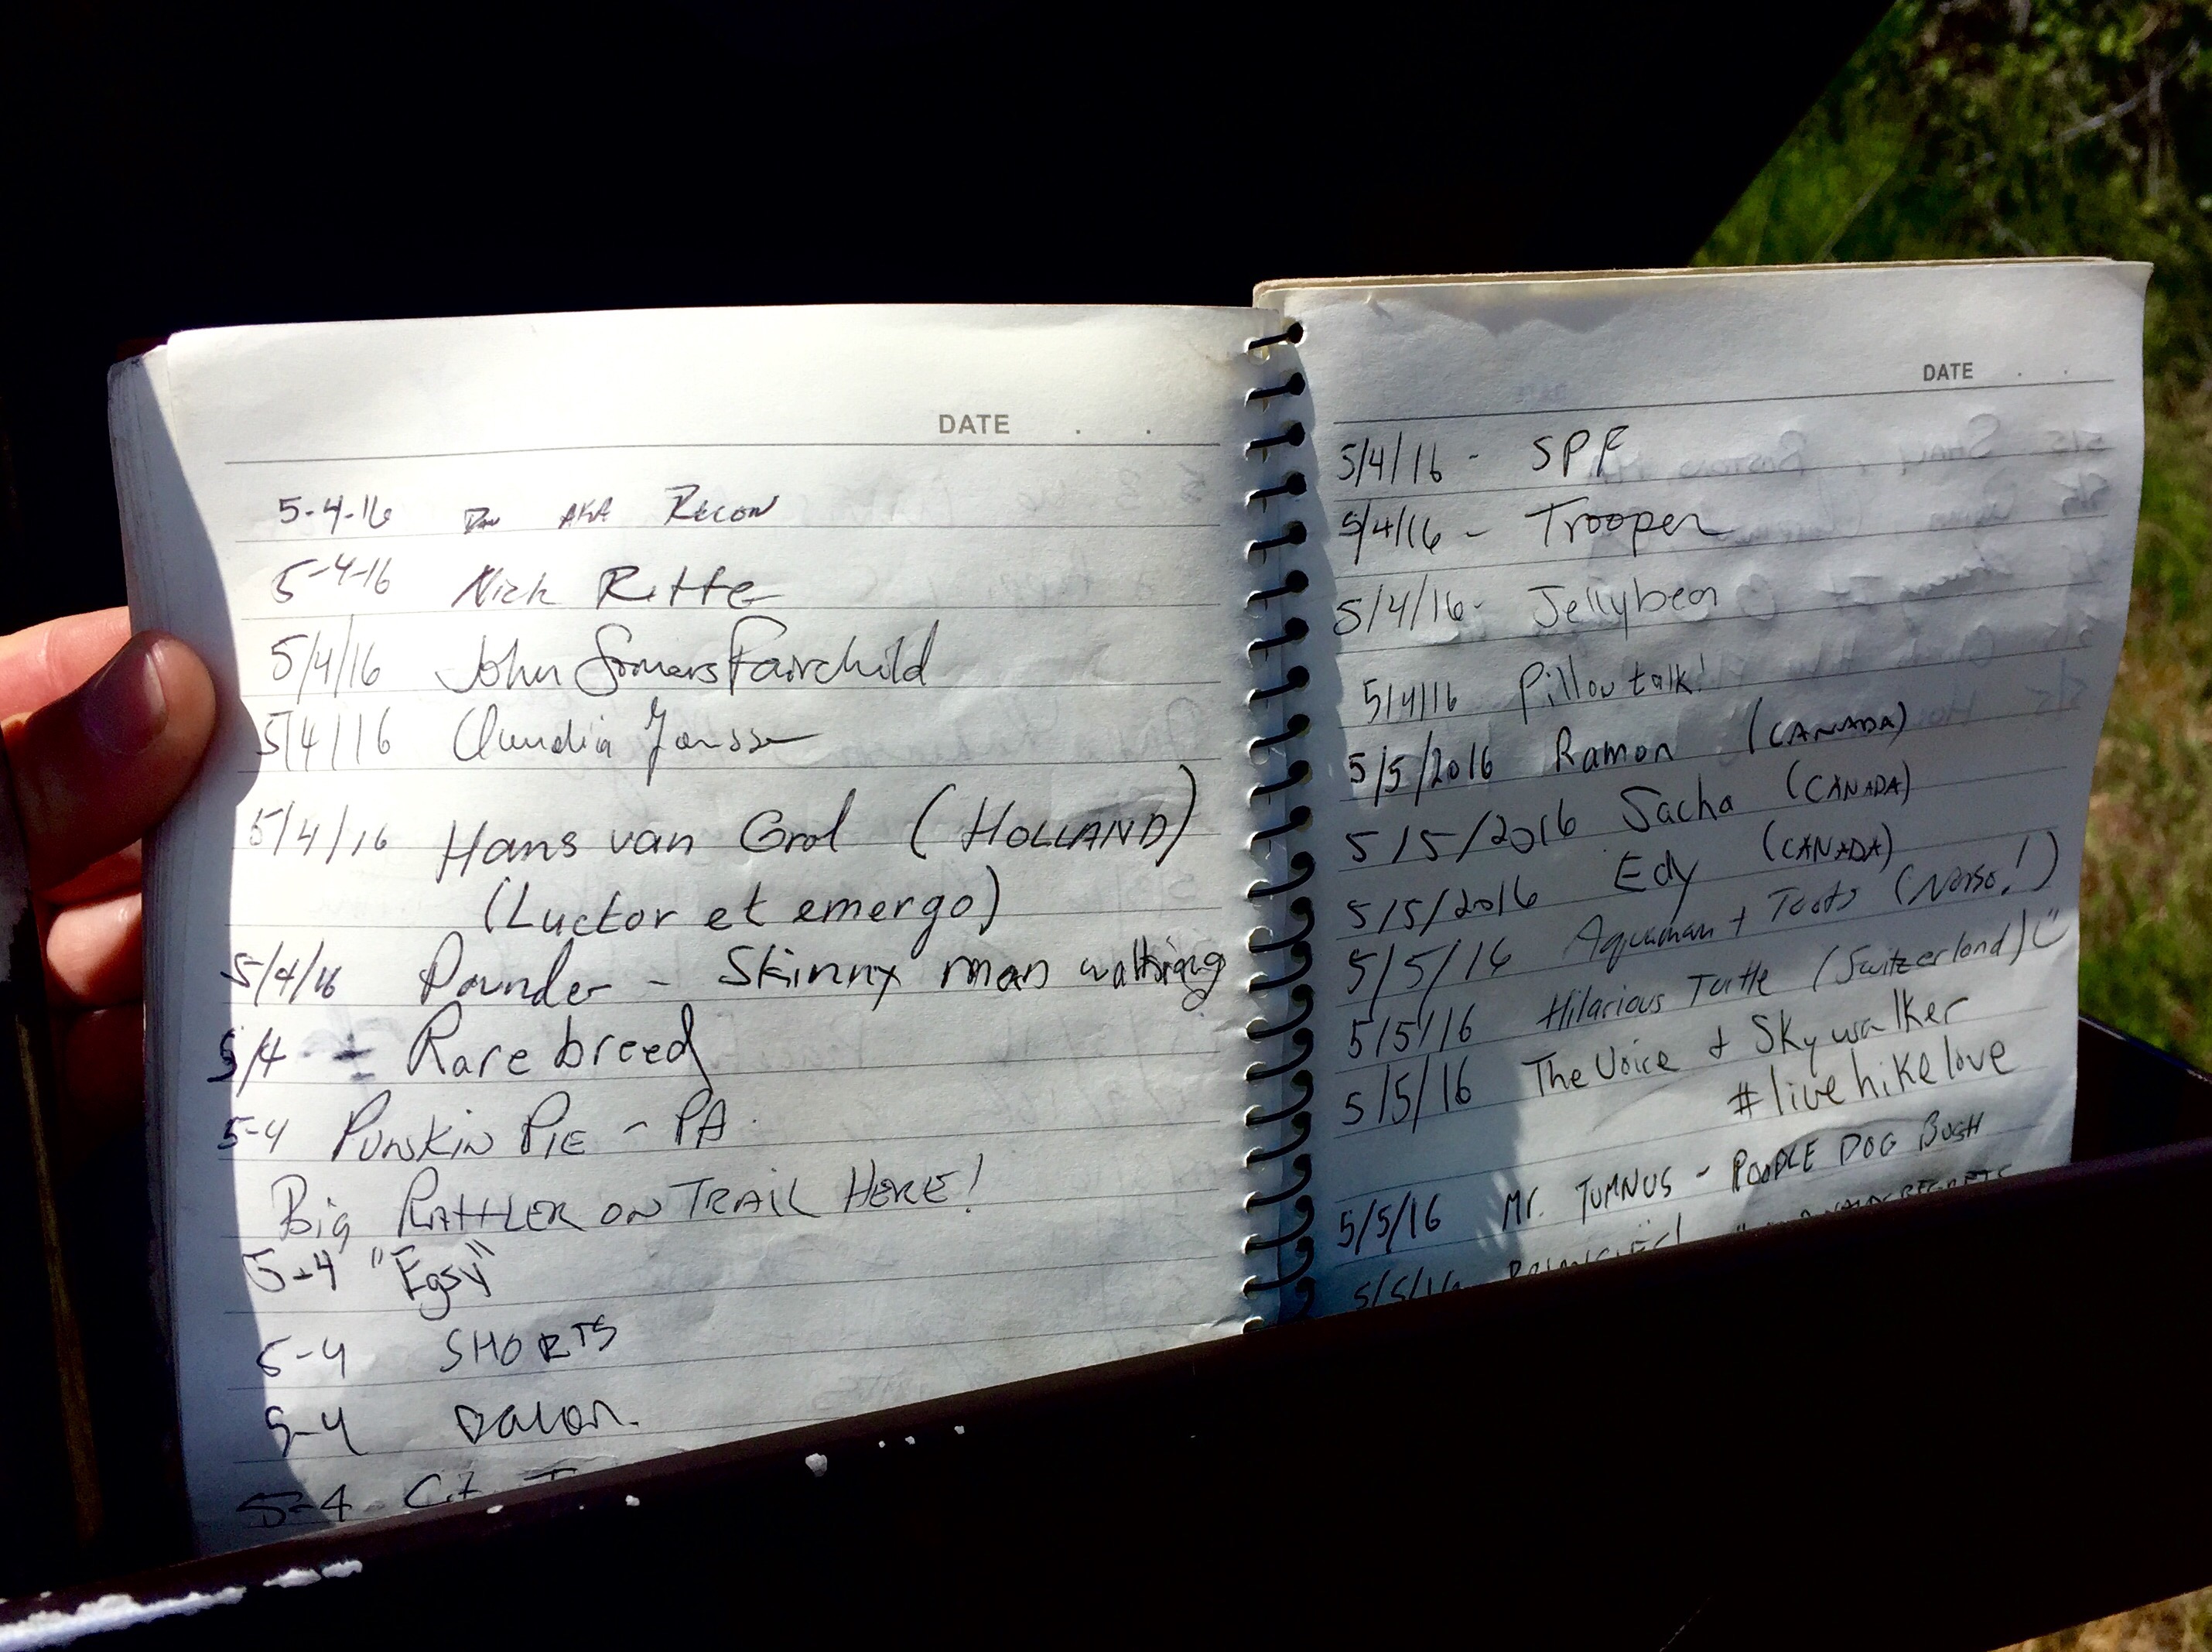 DATE . .
5-4-16 Dan AKA RECON
5-4-16 Nick Ritte
5/4/16 John Somers Fairchild
5/4/16 Claudia Jansse
5/4/16 Hans van Grol (HOLLAND)
(Luctor et emergo)
5/4/16 Pounder - Skinny man walking
5/4 - Rarebreed
5-4 PUNSKIN PIE - PA
Big RATTLER ON TRAIL HERE!
5-4 "Egsy"
5-4 SHORTS
5-4
5-4
DATE . .
5/4/16 - SPF
5/4/16 - Trooper
5/4/16 - Jellybean
5/4/16 Pillowtalk!
5/5/2016 Ramon (CANADA)
5/5/2016 Sacha (CANADA)
5/5/2016 Edy (CANADA)
5/5/16 Aquaman + Toots
5/5/16 Hilarious Turtle (Switzerland)
5/5/16 The Voice + Skywalker
#livehikelove
5/5/16 Mr. TUMNUS - POODLE DOG BUSH
5/5/16